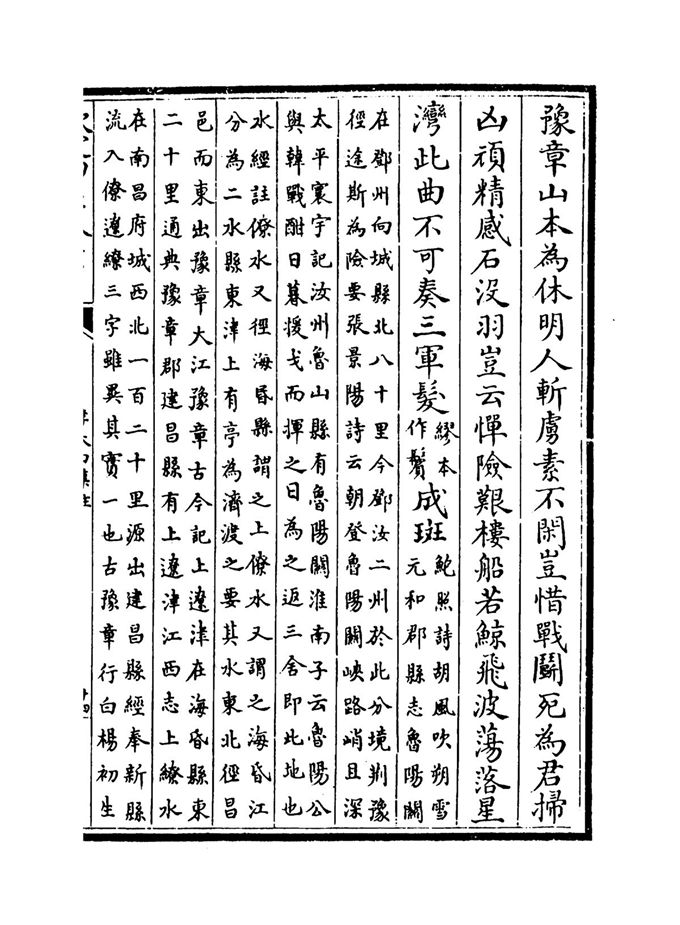 豫章山本為休明人斬虜素不閑豈惜戰鬬死為君掃
凶頑精感石没羽豈云憚險艱樓船若鯨飛波蕩落星
灣此曲不可奏三軍髮
繆本
作鬢
成斑
鮑照詩胡風吹朔雪
元和郡縣志魯陽關
在鄧州向城縣北八十里今鄧汝二州於此分境荆豫
徑途斯為險要張景陽詩云朝登魯陽關峽路峭且深
太平寰宇記汝州魯山縣有魯陽關淮南子云魯陽公
與韓戰酣日暮援戈而揮之日為之返三舍即此地也
水經註僚水又徑海昏縣謂之上僚水又謂之海昏江
分為二水縣東津上有亭為濟渡之要其水東北徑昌
邑而東出豫章大江豫章古今記上遼津在海昏縣東
二十里通典豫章郡建昌縣有上遼津江西志上繚水
在南昌府城西北一百二十里源出建昌縣經奉新縣
流入僚遼繚三字雖異其實一也古豫章行白楊初生